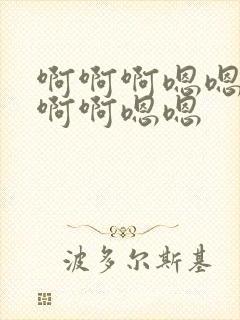 啊啊啊嗯嗯
啊啊嗯嗯
波多尔斯基